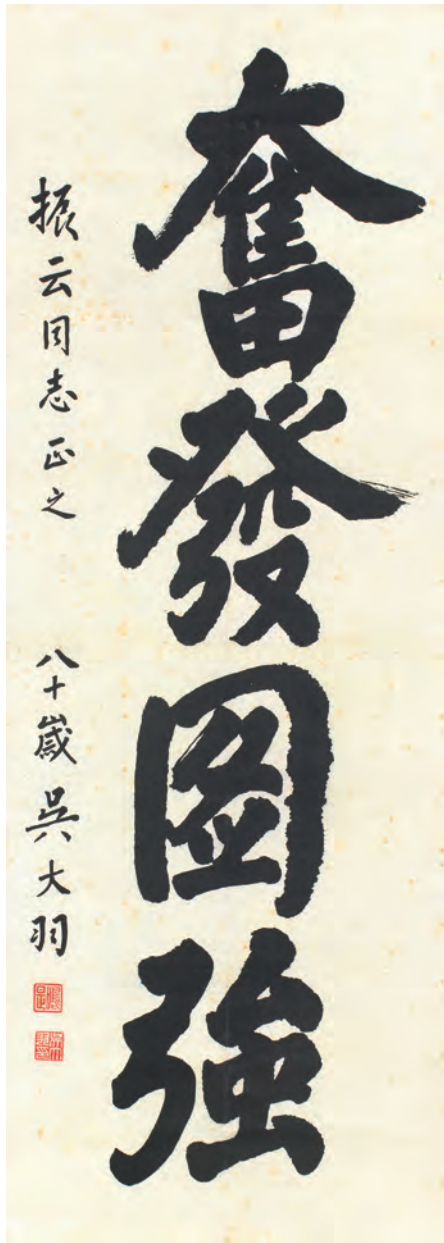 奮發圖強
振云同志正之
八十歲 吳大羽